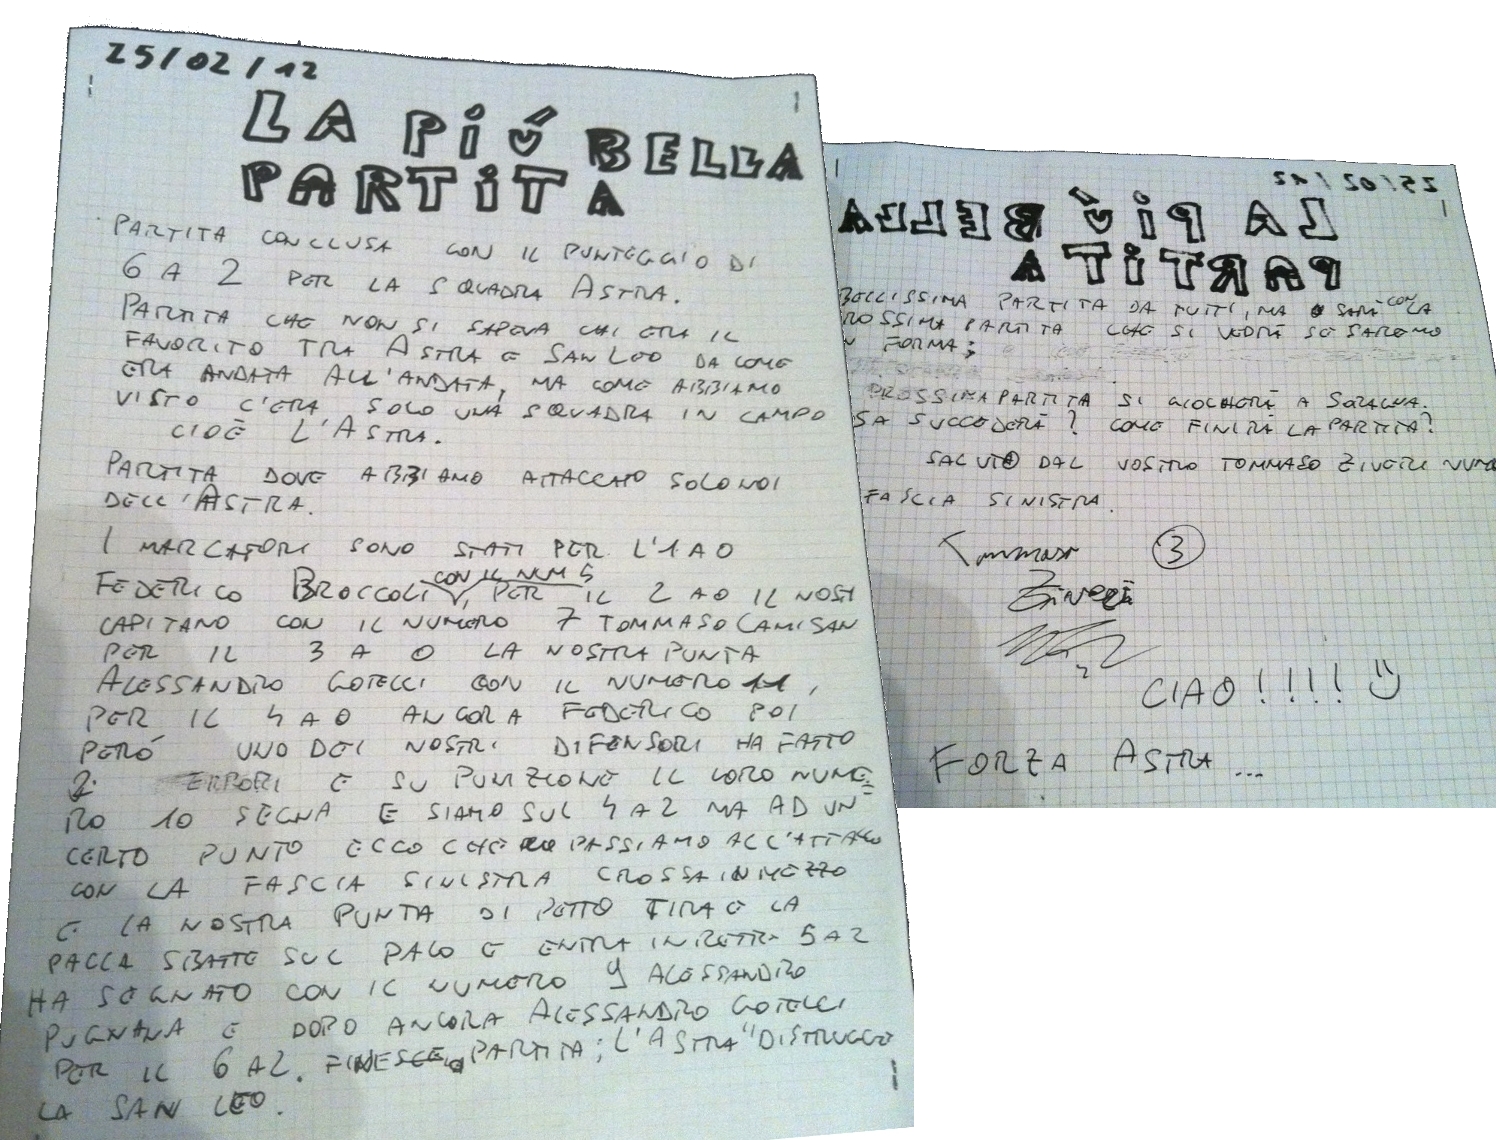 25/02/12
LA PIÚ BELLA
PARTITA
PARTITA CONCLUSA CON IL PUNTEGGIO DI
6 A 2 PER LA SQUADRA ASTRA.
PARTITA CHE NON SI SAPEVA CHI ERA IL
FAVORITO TRA ASTRA E SAN LEO DA COME
ERA ANDATA ALL'ANDATA, MA COME ABBIAMO
VISTO C'ERA SOLO UNA SQUADRA IN CAMPO
CIOÈ L'ASTRA.
PARTITA DOVE ABBIAMO ATTACCATO SOLO NOI
DELL'ASTRA.
I MARCATORI SONO STATI PER L'1 A 0
FEDERICO BROCCOLI CON IL NUM 5, PER IL 2 A 0 IL NOST
CAPITANO CON IL NUMERO 7 TOMMASO CAMISAN
PER IL 3 A 0 LA NOSTRA PUNTA
ALESSANDRO GOTELLI CON IL NUMERO 11,
PER IL 4 A 0 ANCORA FEDERICO POI
PERÓ UNO DEI NOSTRI DIFENSORI HA FATTO
2 ERRORI E SU PUNIZIONE IL LORO NUME=
RO 10 SEGNA E SIAMO SUL 4 A 2 MA AD UN
CERTO PUNTO ECCO CHE PASSIAMO ALL'ATTACCO
CON LA FASCIA SINISTRA CROSSA IN MEZZO
E LA NOSTRA PUNTA DI PETTO TIRA E LA
PALLA SBATTE SUL PALO E ENTRA IN RETE 5 A 2
HA SEGNATO CON IL NUMERO 9 ALESSANDRO
PUGNANA E DOPO ANCORA ALESSANDRO GOTELLI
PER IL 6 A 2. FINESCE PARTITA; L'ASTRA "DISTRUGGE
LA SAN LEO.
25/02/12
LA PIÙ BELLA
PARTITA
BELLISSIMA PARTITA DA TUTTI, MA SARÀ CON LA
ROSSIMA PARTITA CHE SI VEDRÀ SE SAREMO
N FORMA;
PROSSIMA PARTITA SI GIOCHERÀ A SORAGNA.
SA SUCCEDERÀ? COME FINIRÀ LA PARTITA?
SALUTO DAL VOSTRO TOMMASO ZIVERI NUME
FASCIA SINISTRA.
Tommaso 3
Ziveri
CIAO!!!! :)
FORZA ASTRA...